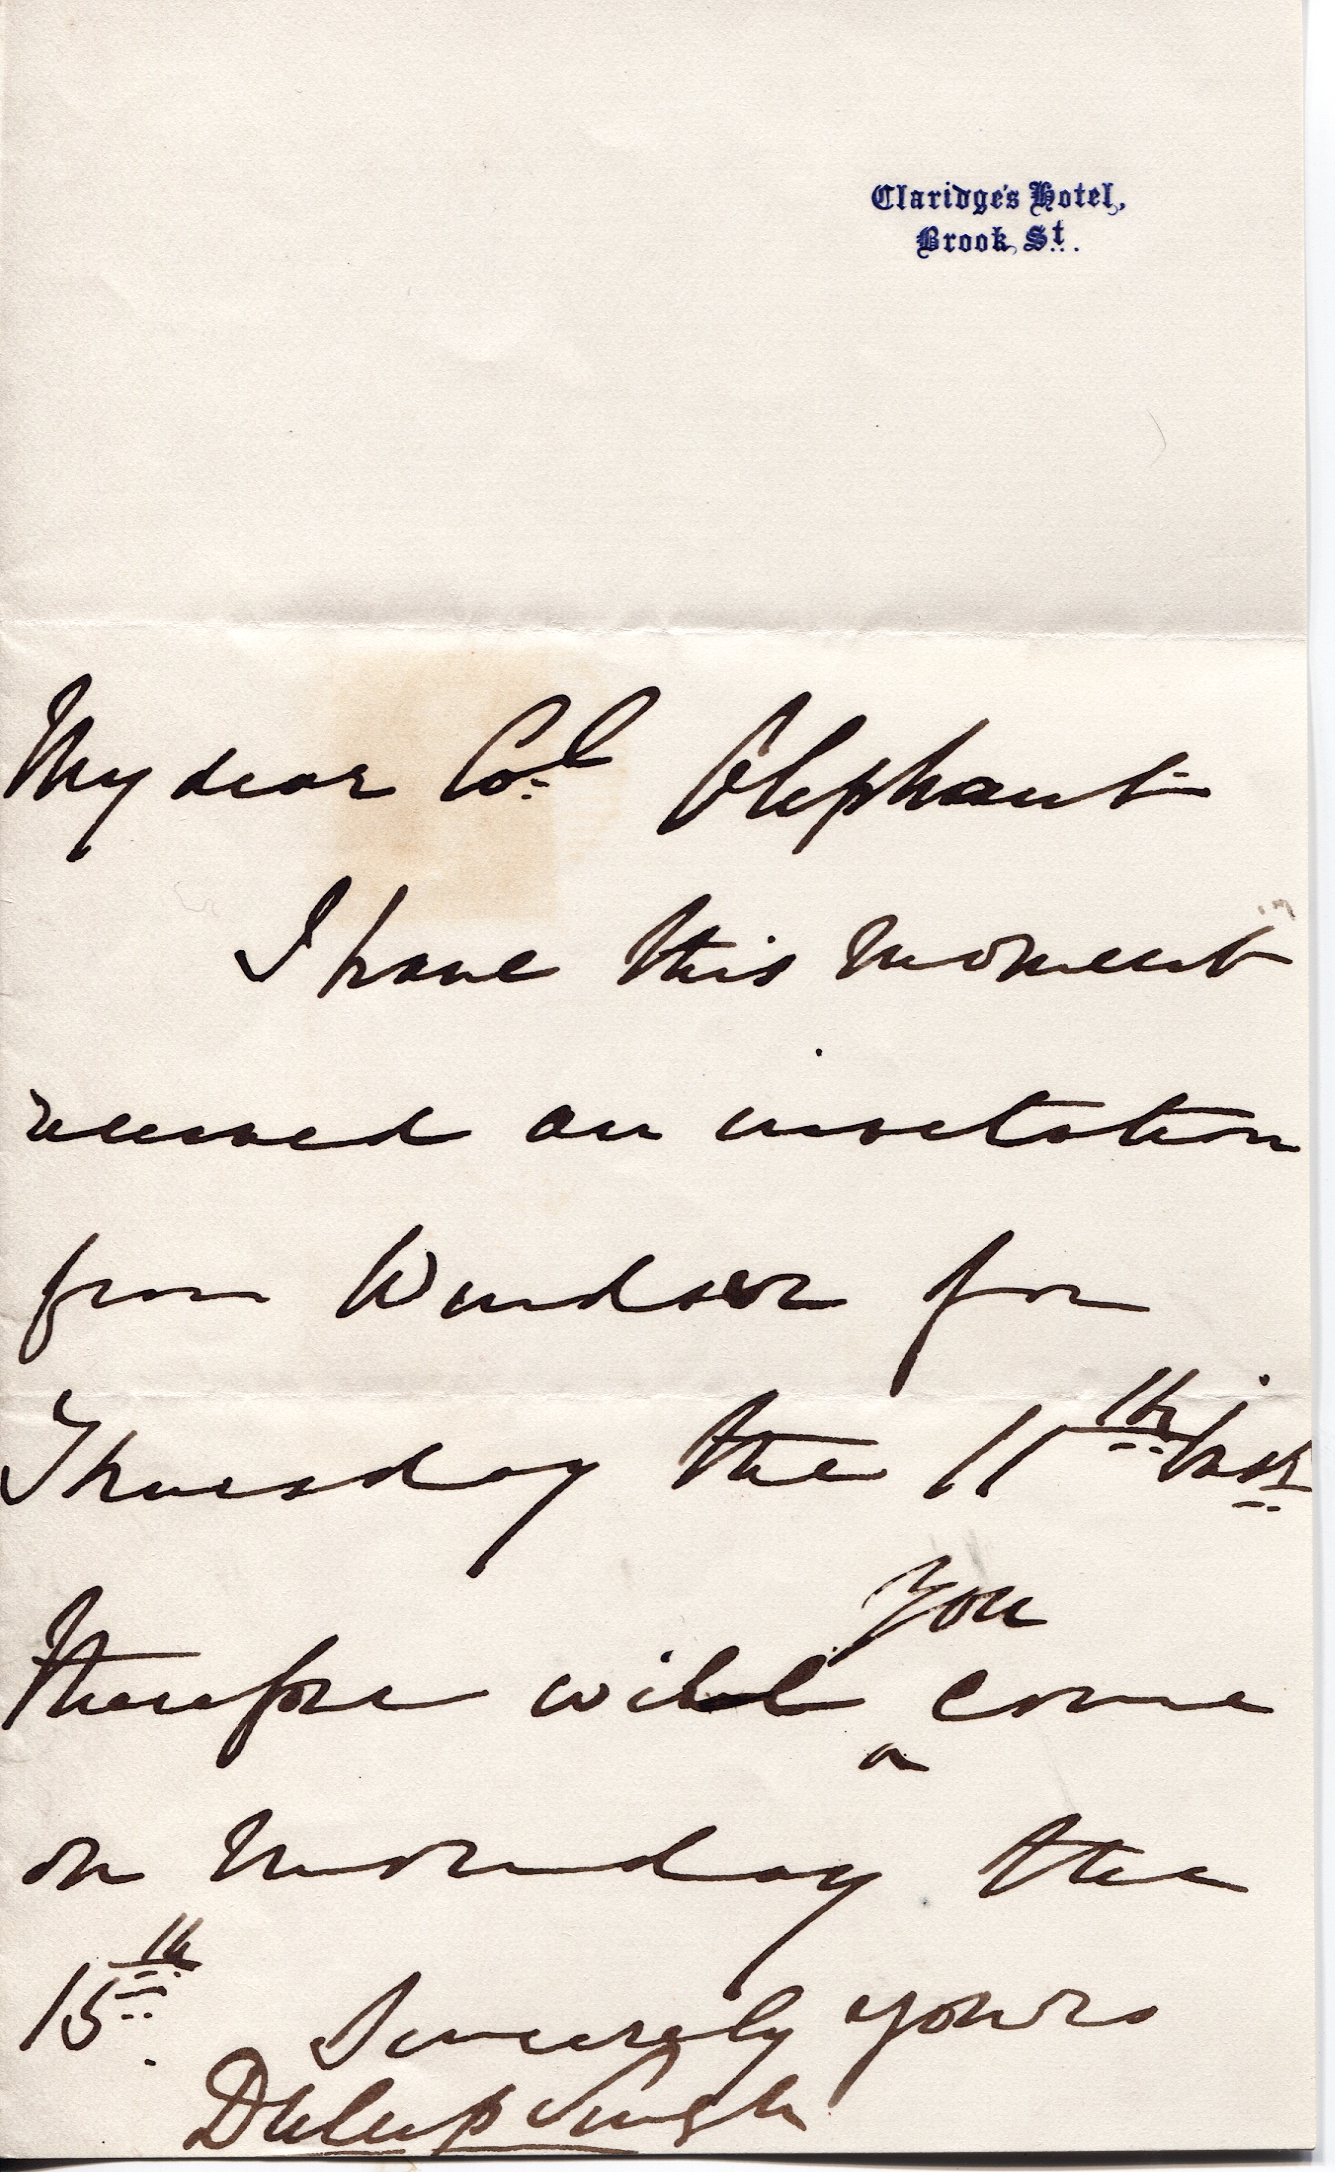 Claridge's Hotel,
Brook St.
My dear Col Oliphant
I have this moment
received an invitation
from Windsor for
Thursday the 11th inst
you
therefore will come
on Monday the
15th. Sincerely yours
Duleep Singh